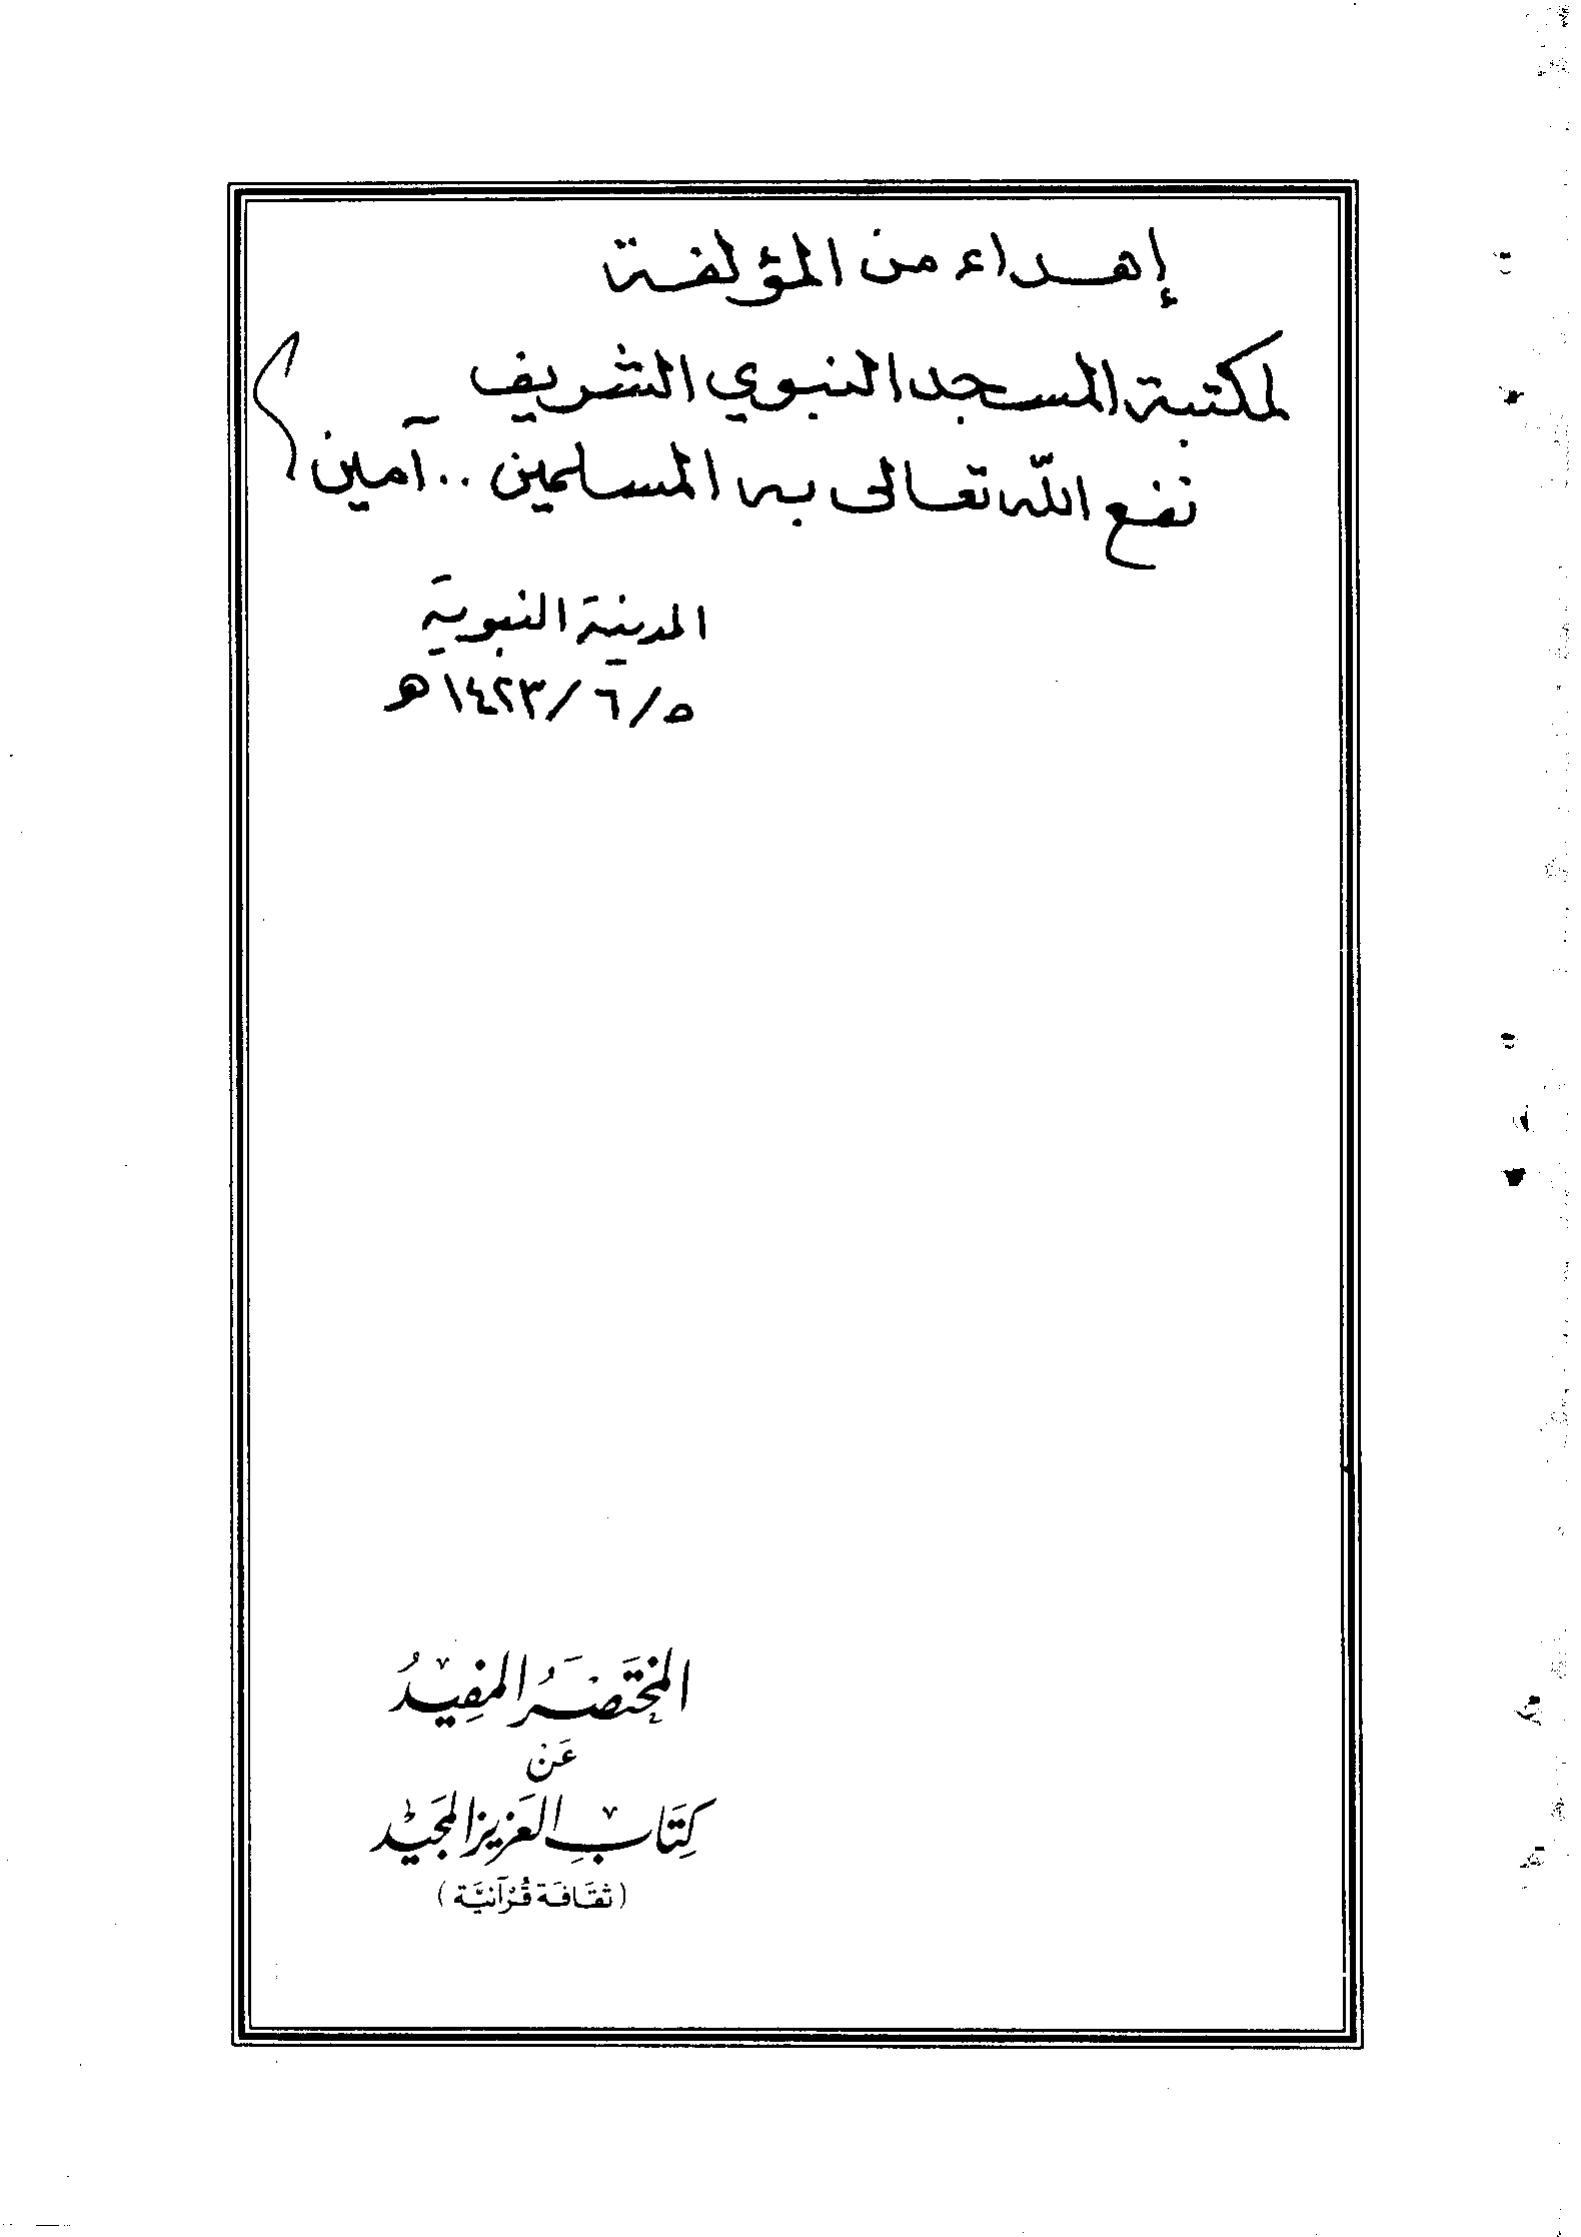 إهداء من المؤلفة
لمكتبة المسجد النبوي الشريف
نفع الله تعالى به المسلمين .. آمين
المدينة النبوية
٥/ ٦ /١٤٢٣ هـ
المختَصَرُ المفِيدُ
عَن
كِتَابِ العَزيز المجَيد
(ثقَافَة قُرْآنيَّة)